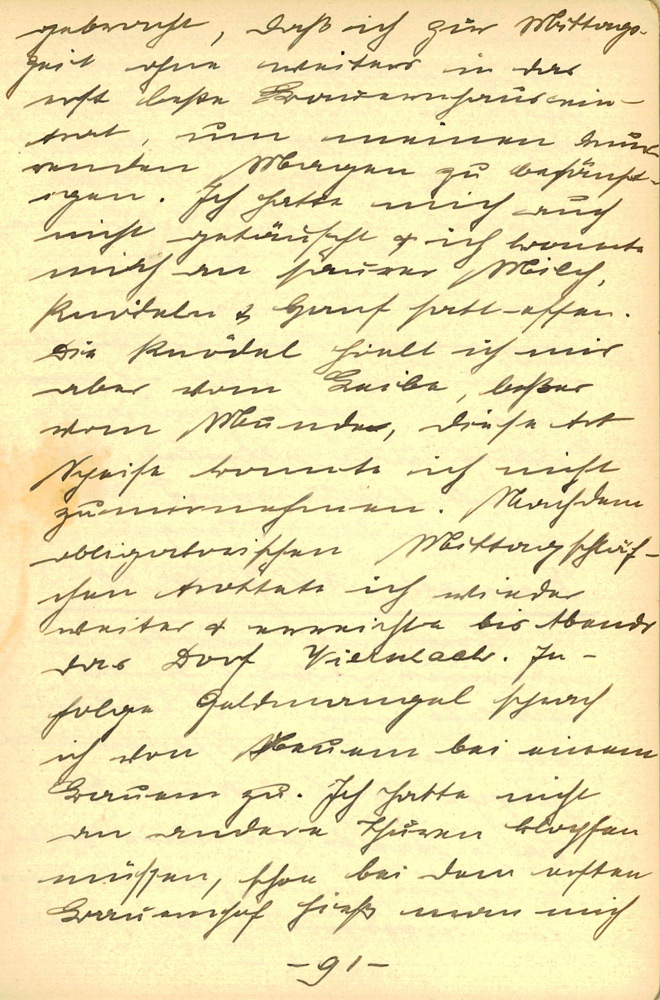 gebracht, daß ich zur Mittags-
zeit ohne weiters in das
erst beße Bauernhaus ein-
trat, um meinen knur-
renden Magen zu besänft-
igen. Ich hatte mich auch
nicht getäuscht & ich konnte
mich an saurer Milch,
Knödeln & Hanf satt-essen.
Die Knödel hielt ich mir
aber vom Leibe, beßer
vom Munde, diese Art
Speise konnte ich nicht
zu mir nehmen. Nach dem
obligatorischen Mittagschläf-
chen trottete ich wieder
weiter & erreichte bis Abends
das Dorf. In-
folge Geldmangel sprach
ich von Neuem bei einem
Bauern zu. Ich hatte nicht
an andere Thüren klopfen
müssen, schon bei dem ersten
Bauernhof hieß man mich
-91-